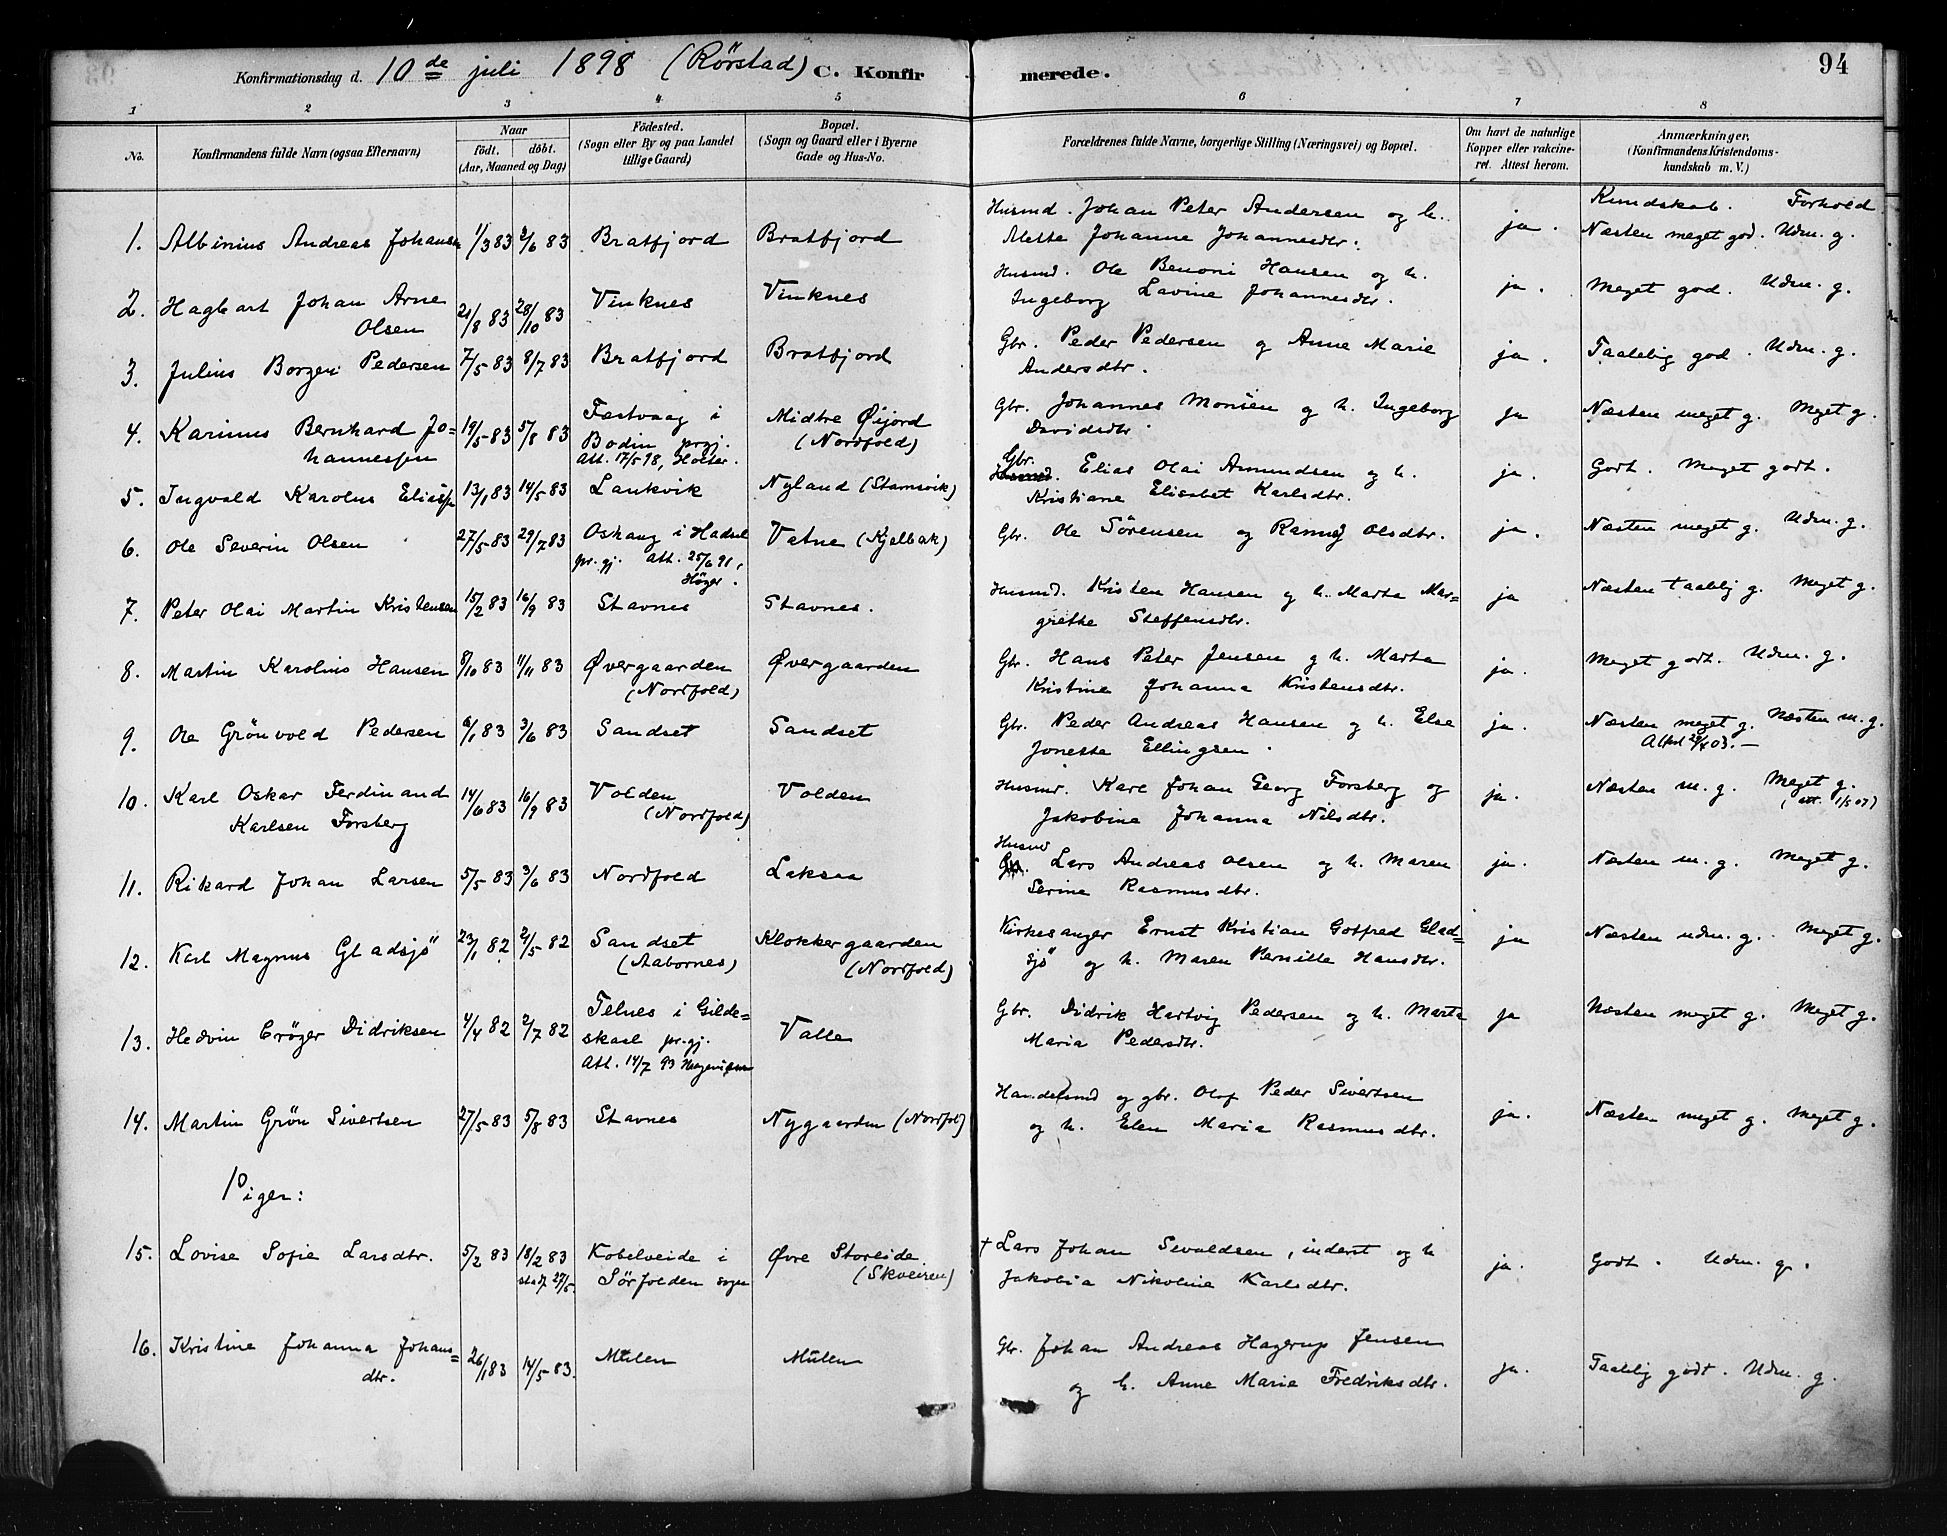 Konfirmationsdag d. 10de juli 1898 (Rörstad) C. Konfirmerede. 94
1 2 3 4 5 6 7 8
No. Konfirmandens fulde Navn (ogsaa Efternavn) Naar födt. döbt. (Aar, Maaned og Dag) Födested. (Sogn eller By og paa Landet tillige Gaard) Bopæl. (Sogn og Gaard eller i Byerne Gade og Hus-No. Forældrenes fulde Navne, borgerlige Stilling (Næringsvei) og Bopæl. Om havt de naturlige Kopper eller vakcineret. Attest herom. Anmærkninger. (Konfirmandens Kristendomskundskab m. V.)
Kundskab. Forhold
1. Albinius Andreas Johansen 1/3 83 3/6 83 Bratfjord Bratfjord Husmd. Johan Peter Andersen og h. Mette Johanne Johannesdtr. ja. Næsten meget god. Udm. g.
2. Hagbart Johan Arne Olsen 21/8 83 28/10 83 Vinknes Vinknes Husmd. Ole Benoni Hansen og h. Ingeborg Lavine Johannesdtr. ja. Meget god. Udm. g.
3. Julius Borgen Pedersen 7/5 83 8/7 83 Bratfjord Bratfjord Gbr. Peder Pedersen g Anne Marie Andersdtr. ja. Taalelig god. Udm. g.
4. Karinus Bernhard Johannessen 19/5 83 5/8 83 Fæstvaag i Bodin prgj. Att. 17/5 98, Holter. Midtre Øijord (Nordfold) Gbr. Johannes Monsen og h. Ingeborg Davidsdtr. ja Næsten meget g. Meget g.
5. Ingvald Karolus Eliass 13/1 83 14/5 83 Lankvik Nyland (Stamsvik) Gbr. Husmd. Elias Olai Amundsen og h. Kristiane Elisabet Karlsdtr. ja. Godt. Meget godt.
6. Ole Severin Olsen 27/5 83 29/7 83 Oshaug i Hadsel pr.gj. Att. 25/6 91, Höyer. Vatne (Kjelbak) Gbr. Ole Sörensen og Olsdtr. ja. Næsten meget g. Udm. g.
7. Peter Olai Martin Kristensen 15/2 83 16/9 83 Stavnes Stavnes. Husmd. Kristen Hansen og h. Marta Margrethe Steffensdtr. ja Næsten taalelig g. Meget g.
8. Martin Karolius Hansen 8/10 83 11/11 83 Øvergaarden (Nordfold) Øvergaarden Gbr. Hans Peter Jensen g h. Marta Kristine Johanna Kristensdtr. ja. Meget godt. Udm. g.
9. Ole Grönvold Pedersen 6/1 83 3/6 83 Sandset Sandset Gbr. Peder Andreas Hansen og h. Else Jonetta Ellingsen. ja. Næsten meget g. Næsten m. g.
10. Karl Oskar Ferdinand Karlsen Forsberg 14/6 83 16/9 83 Volden (Nordfold) Volden Husmd. Karl Johan Georg Forsberg og Jakobine Johanna Nilsdtr. ja. Næsten m. g. Meget g. (att. 1/5 07)
11. Rikard Johan Larsen 5/5 83 3/6 83 Nordfold Laksaa Husmd Gbr. Lars Andreas Olsen og h. Maren Serine Rasmusdtr. ja. Næsten m. g. Meget g.
12. Karl Magnus Gladsjö 23/1 82 2/5 82 Sandset (Aabornes) Klokkergaarden (Nordfold) Kirkesanger Ernst Kristian Gotfred Gladsjö og h. Maren Pernille Hansdtr. ja Næsten udm. g. Meget g.
13. Hedvin Crøger Didriksen 4/4 82 2/7 82 Telnes i Gildeskaal pr.gj. Att. 14/7 93 Valle Gbr. Didrik Hartvig Pedersen og h. Marta Maria Pedersdtr. ja Næsten meget g. Meget g.
14. Martin Grön Sivertsen 27/5 83 5/8 83 Stavnes Nygaarden (Nordfol) Handelsmd og gbr. Olof Peder Sivertsen og h. Elen Maria Rasmusdtr. ja. Næsten meget g. Meget g.
Piger:
15. Lovise Sofie Larsdtr. 5/2 83 18/2 83 stadf 27/5. Kobelveide i Sörfolden sogn Øvre Storeide (Skveiren) † Lars Johan Sivaldsen, inderst og h Jakobia Nikoline Karlsdtr. ja. Godt. Udm. g.
16. Kristine Johanna Johansdtr. 26/1 83 14/5 83. Mulen Mulen Gbr. Johan Andreas Hagerup Jensen og h. Anne Marie Fredriksdtr. ja. Taalelig godt. Udm. g.